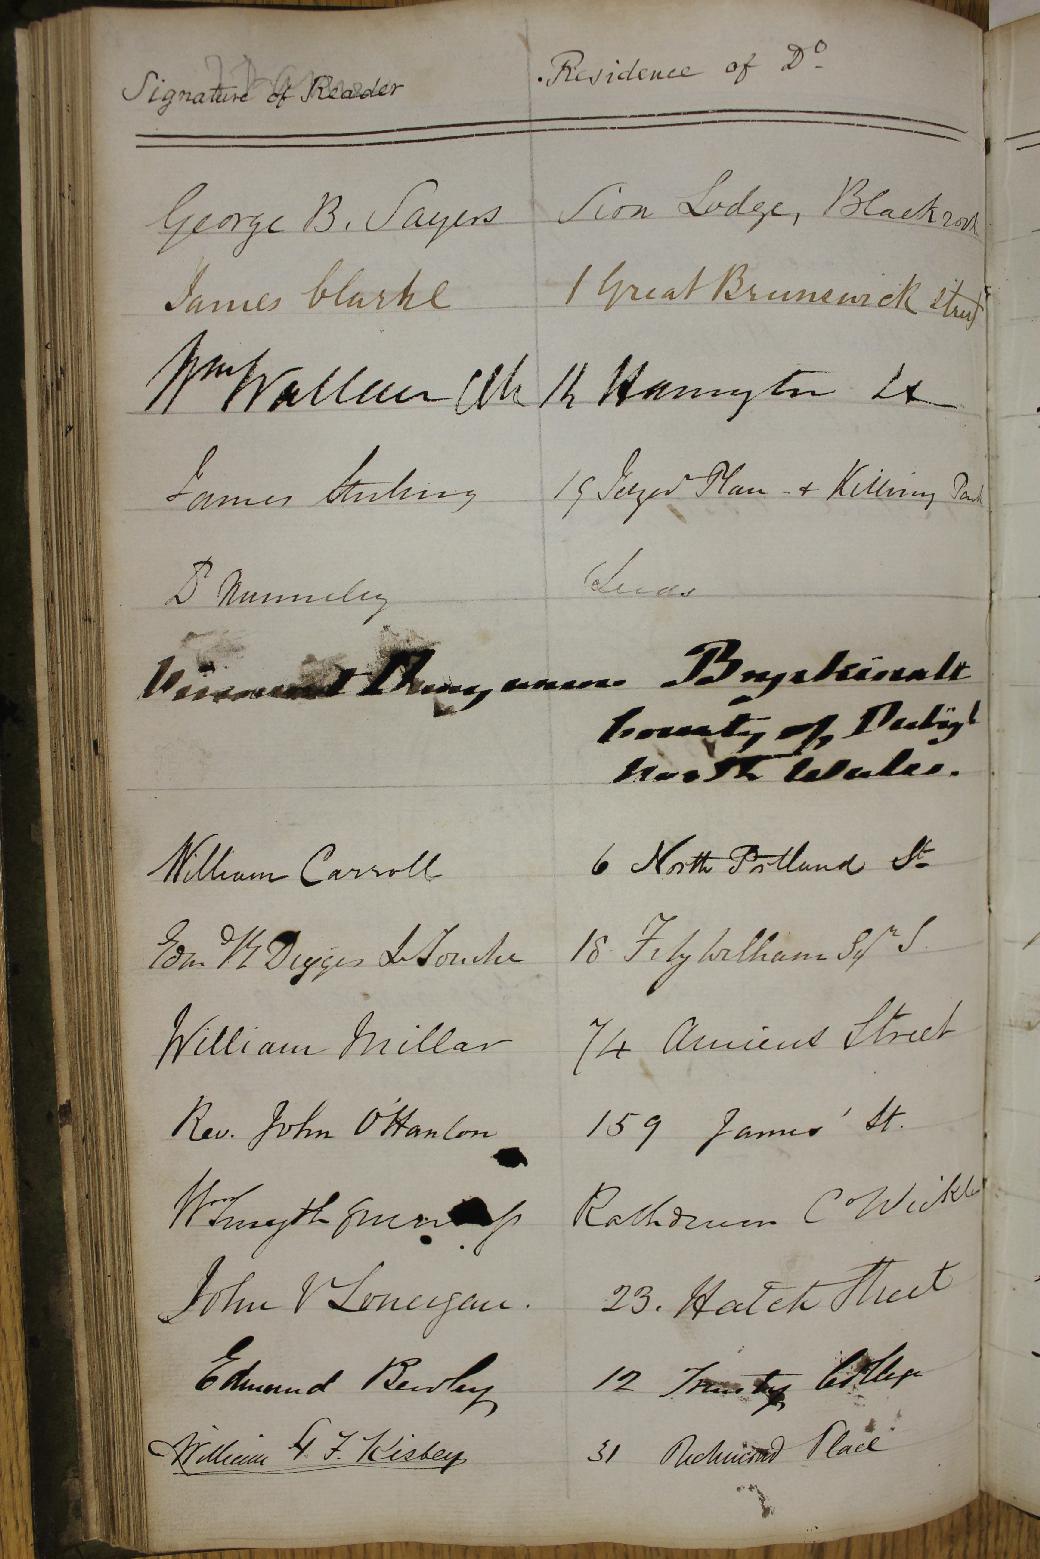 Signature of Reader Residence of Do
George B. Sayers Sion Lodge, Blackrock
James Clarke 1 Great Brunswick Street
Wm Wallace 14 Harrington St
James Stirling 19 Place + Killiney Park
D Nunneley Leeds
Viscount Dungannon Brynkinalt
County of Denbigh
North Wales.
William Carroll 6 North Portland St
Edmd R Digges La Touche 18 Fitzwilliam Sqr S
William Millar 74 Amiens Street
Rev. John O'Hanlon 159 James' St.
Wm Smyth Rathdrum Co Wicklow
John V Lonergan. 23. Hatch Street
Edmund Bewley 12 Trinity College
William G F. Kisbey 31 Richmond Place